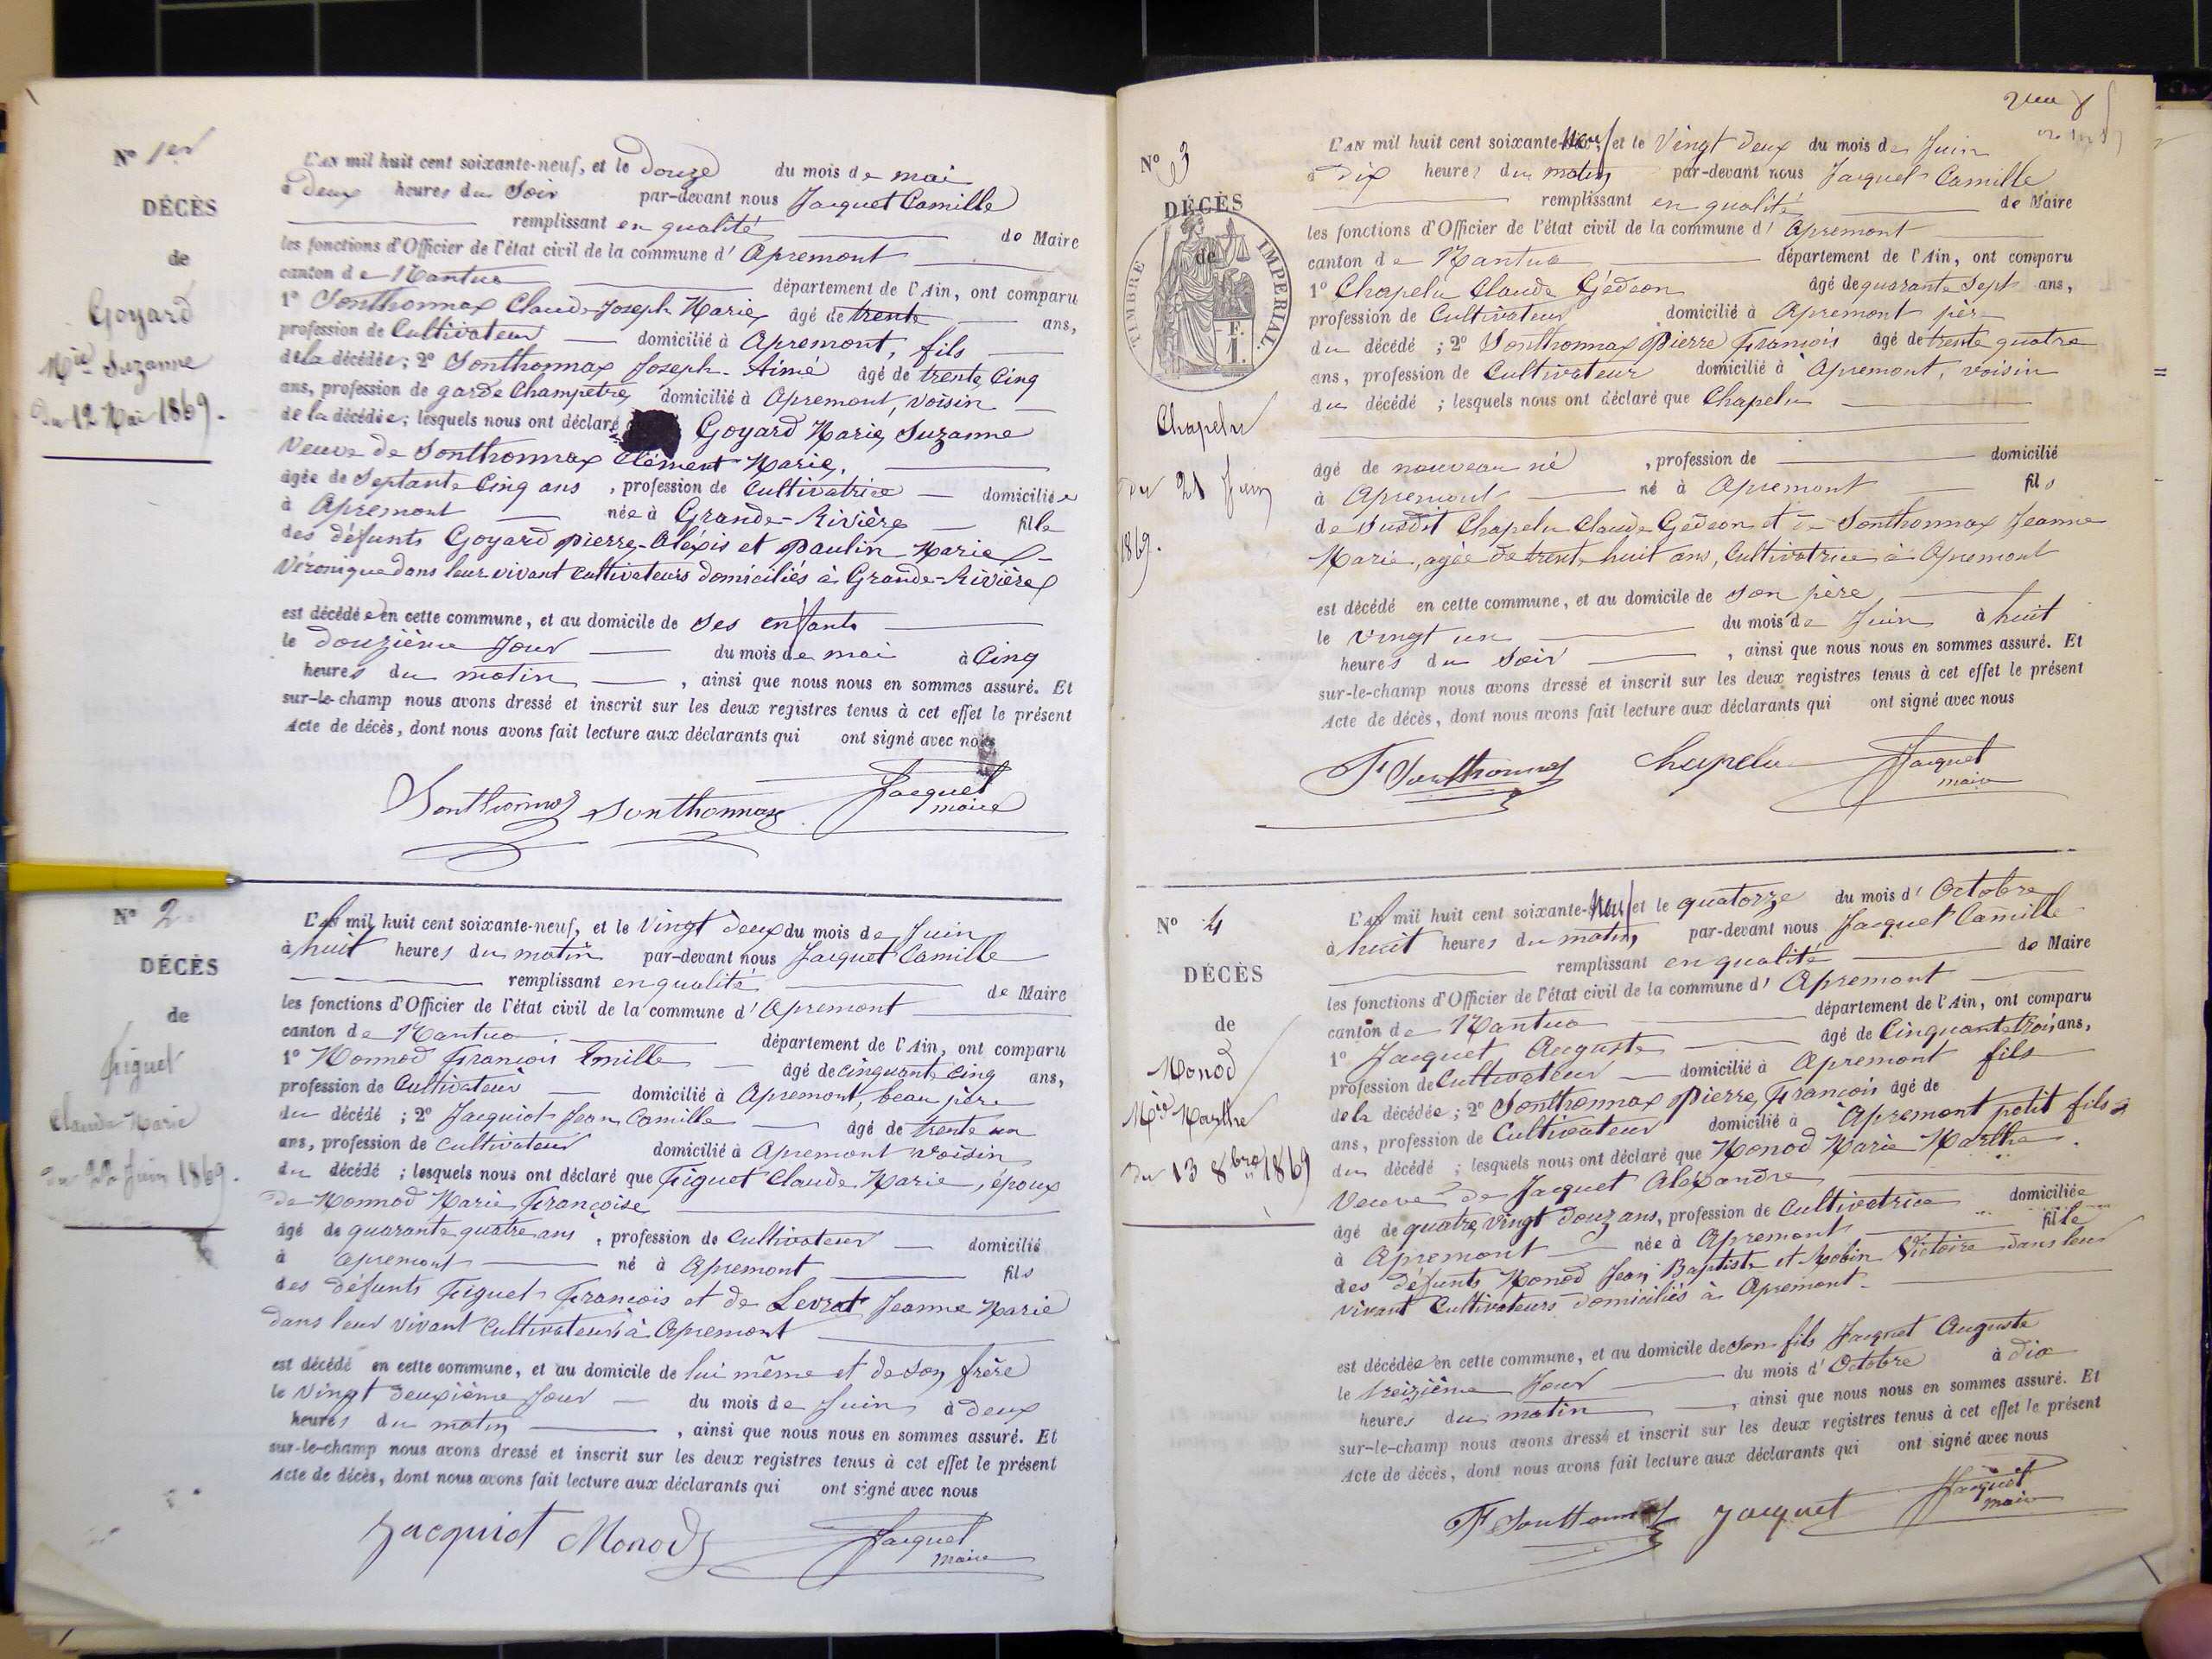 N° 1er
DÉCÈS
de
Goyard
Mie Suzanne
Du 12 Mai 1869.
L'AN mil huit cent soixante-neuf, et le douze du mois de mai
à deux heures du Soir par-devant nous Jacquet Camille
remplissant en qualité de Maire
les fonctions d'Officier de l'état civil de la commune d' Apremont
canton de Nantua département de l'Ain, ont comparu
1° Sonthonnax Claude-Joseph Marie, âgé de trente ans,
profession de Cultivateur domicilié à Apremont, fils
de la décédée; 2° Sonthonnax Joseph-Aimé âgé de trente Cinq
ans, profession de garde Champetre, domicilié à Apremont, voisin
de la décédée; lesquels nous ont déclaré Goyard Marie, Suzanne
Veuve de Sonthonnax Clément Marie,
âgée de Septante Cinq ans, profession de Cultivatrice domiciliée
à Apremont née à Grande-Rivière fille
des défunts Goyard pierre-Aléxis et paulin Marie
Véronique dans leur vivant Cultivateurs domiciliés à Grande-Rivière
est décédée en cette commune, et au domicile de ses enfants
le douzième Jour du mois de mai à Cinq
heures du matin, ainsi que nous nous en sommes assuré. Et
sur-le-champ nous avons dressé et inscrit sur les deux registres tenus à cet effet le présent
Acte de décès, dont nous avons fait lecture aux déclarants qui ont signé avec nous
Sonthonnax Sonthonnax Jacquet
maire
N° 2
DÉCÈS
de
figuet
Claude Marie
Du 22 Juin 1869.
L'AN mil huit cent soixante-neuf, et le Vingt deux du mois de Juin
à huit heures du matin par-devant nous Jacquet Camille
remplissant en qualité de Maire
les fonctions d'Officier de l'état civil de la commune d' Apremont
canton de Nantua département de l'Ain, ont comparu
1° Monnod François Emille âgé de cinquante Cinq ans,
profession de Cultivateur domicilié à Apremont, beau père
du décédé; 2° Jacquiot Jean Camille âgé de trente un
ans, profession de Cultivateur domicilié à Apremont voisin
du décédé; lesquels nous ont déclaré que Figuet Claude Marie, époux
de Monnod Marie Françoise
âgé de quarante quatre ans, profession de Cultivateur domicilié
à apremont né à Apremont fils
des défunts Figuet François et de Levrat Jeanne Marie
dans leur vivant Cultivateurs à Apremont
est décédé en cette commune, et au domicile de lui même et de son frère
le Vingt deuxième Jour du mois de Juin à deux
heures du matin, ainsi que nous nous en sommes assuré. Et
sur-le-champ nous avons dressé et inscrit sur les deux registres tenus à cet effet le présent
Acte de décès, dont nous avons fait lecture aux déclarants qui ont signé avec nous
Jacquiot Monod Jacquet
maire
N° 3
DÉCÈS
de
TIMBRE IMPERIAL.
F.
1.
Chapelu
du 21 Juin
1869.
L'AN mil huit cent soixante-Neuf et le Vingt deux du mois de Juin
à Dix heures du matin par-devant nous Jacquet Camille
remplissant en qualité de Maire
les fonctions d'Officier de l'état civil de la commune d' Apremont
canton de Nantua département de l'Ain, ont comparu
1° Chapelu Claude Gédeon âgé de quarante Sept ans,
profession de Cultivateur domicilié à Apremont père
du décédé; 2° Sonthonnax Pierre François âgé de trente quatre
ans, profession de Cultivateur domicilié à Apremont, voisin
du décédé; lesquels nous ont déclaré que Chapelu
âgé de nouveau né, profession de domicilié
à Apremont né à Apremont fils
de susdit Chapelu Claude Gedeon et de Sonthonnax Jeanne
Marie, agée de trente huit ans, Cultivatrice à Apremont
est décédé en cette commune, et au domicile de son père
le vingt un du mois de Juin à huit
heures du Soir, ainsi que nous nous en sommes assuré. Et
sur-le-champ nous avons dressé et inscrit sur les deux registres tenus à cet effet le présent
Acte de décès, dont nous avons fait lecture aux déclarants qui ont signé avec nous
Sonthonnax Chapelu Jacquet
maire
N° 4
DÉCÈS
de
Monod
Mie Marthe
Du 13 8bre 1869
L'AN mil huit cent soixante-Neuf et le quatorze du mois d' Octobre
à huit heures du matin par-devant nous Jacquet Camille
remplissant en qualité de Maire
les fonctions d'Officier de l'état civil de la commune d' Apremont
canton de Nantua département de l'Ain, ont comparu
1° Jacquet Auguste âgé de Cinquante trois ans,
profession de Cultivateur domicilié à Apremont fils
de la décédée; 2° Sonthonnax Pierre, François âgé de
ans, profession de Cultivateur domicilié à Apremont petit fils
du décédé; lesquels nous ont déclaré que Monod Marie Marthe.
Veuve de Jacquet Aléxandre
âgé de quatre vingt douz ans, profession de Cultivatrice domiciliée
à Apremont née à Apremont fille
des défunts Monod Jean Baptiste et Mobin Victoire dans leur
vivant Cultivateurs domiciliés à Apremont
est décédée en cette commune, et au domicile de son fils Jacquet Auguste
le treizième Jour du mois d' Octobre à dix
heures du matin, ainsi que nous nous en sommes assuré. Et
sur-le-champ nous avons dressé et inscrit sur les deux registres tenus à cet effet le présent
Acte de décès, dont nous avons fait lecture aux déclarants qui ont signé avec nous
Sonthonnax Jacquet Jacquet
maire